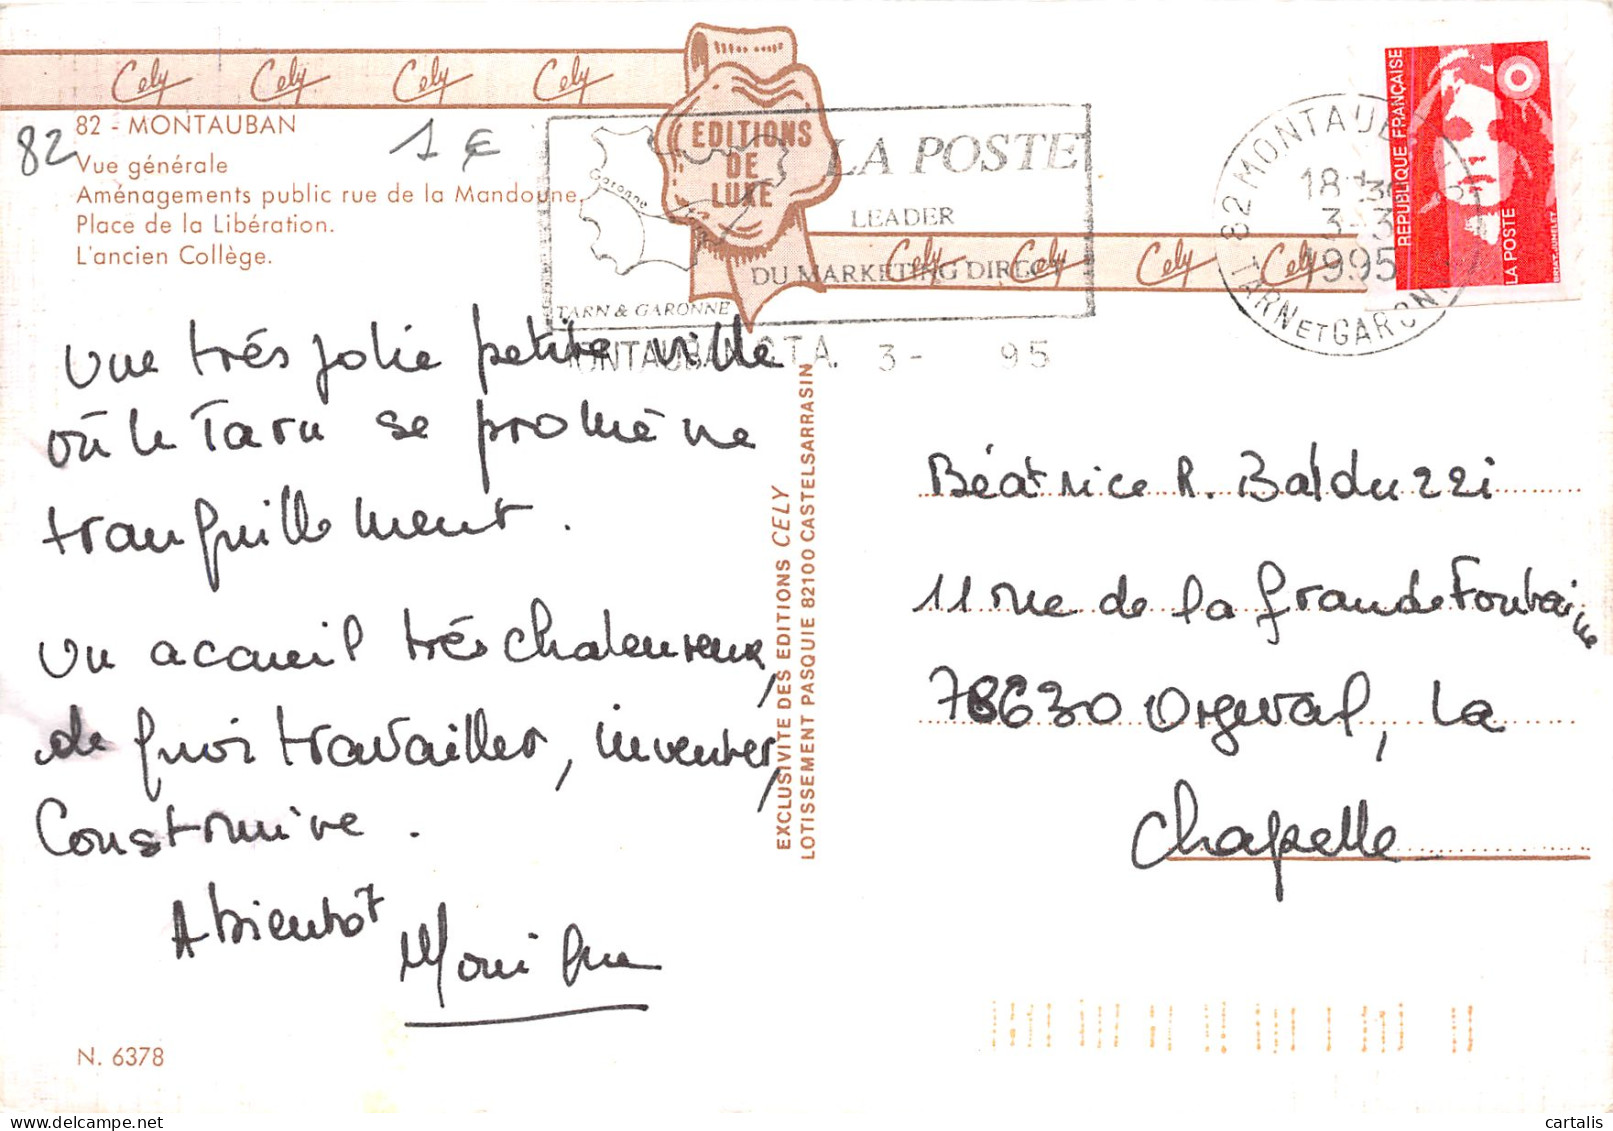 Cely Cely Cely Cely
82 - MONTAUBAN
Vue générale
Aménagements public rue de la Mandoune.
Place de la Libération.
L'ancien Collège.
82
1 €
EDITIONS
DE
LUXE
Cely Cely Cely Cely
Garonne
TARN & GARONNE
LA POSTE
LEADER
DU MARKETING DIRECT
MONTAUBAN C.T.A. 3- 95
82 MONTAUBAN
18
3-3
1995
TARN ET GARONNE
REPUBLIQUE FRANÇAISE
LA POSTE
BRIAT-JUMELET
Une très jolie petite ville
où le Tarn se promène
tranquillement.
Un accueil très chaleureux,
de quoi travailler, inventer,
Construire.
A bientôt
Monique
EXCLUSIVITE DES EDITIONS CELY
LOTISSEMENT PASQUIE 82100 CASTELSARRASIN
Béatrice R. Balduzzi
11 rue de la grande Fontaine
78630 Orgeval, La
Chapelle
N. 6378
cartalis